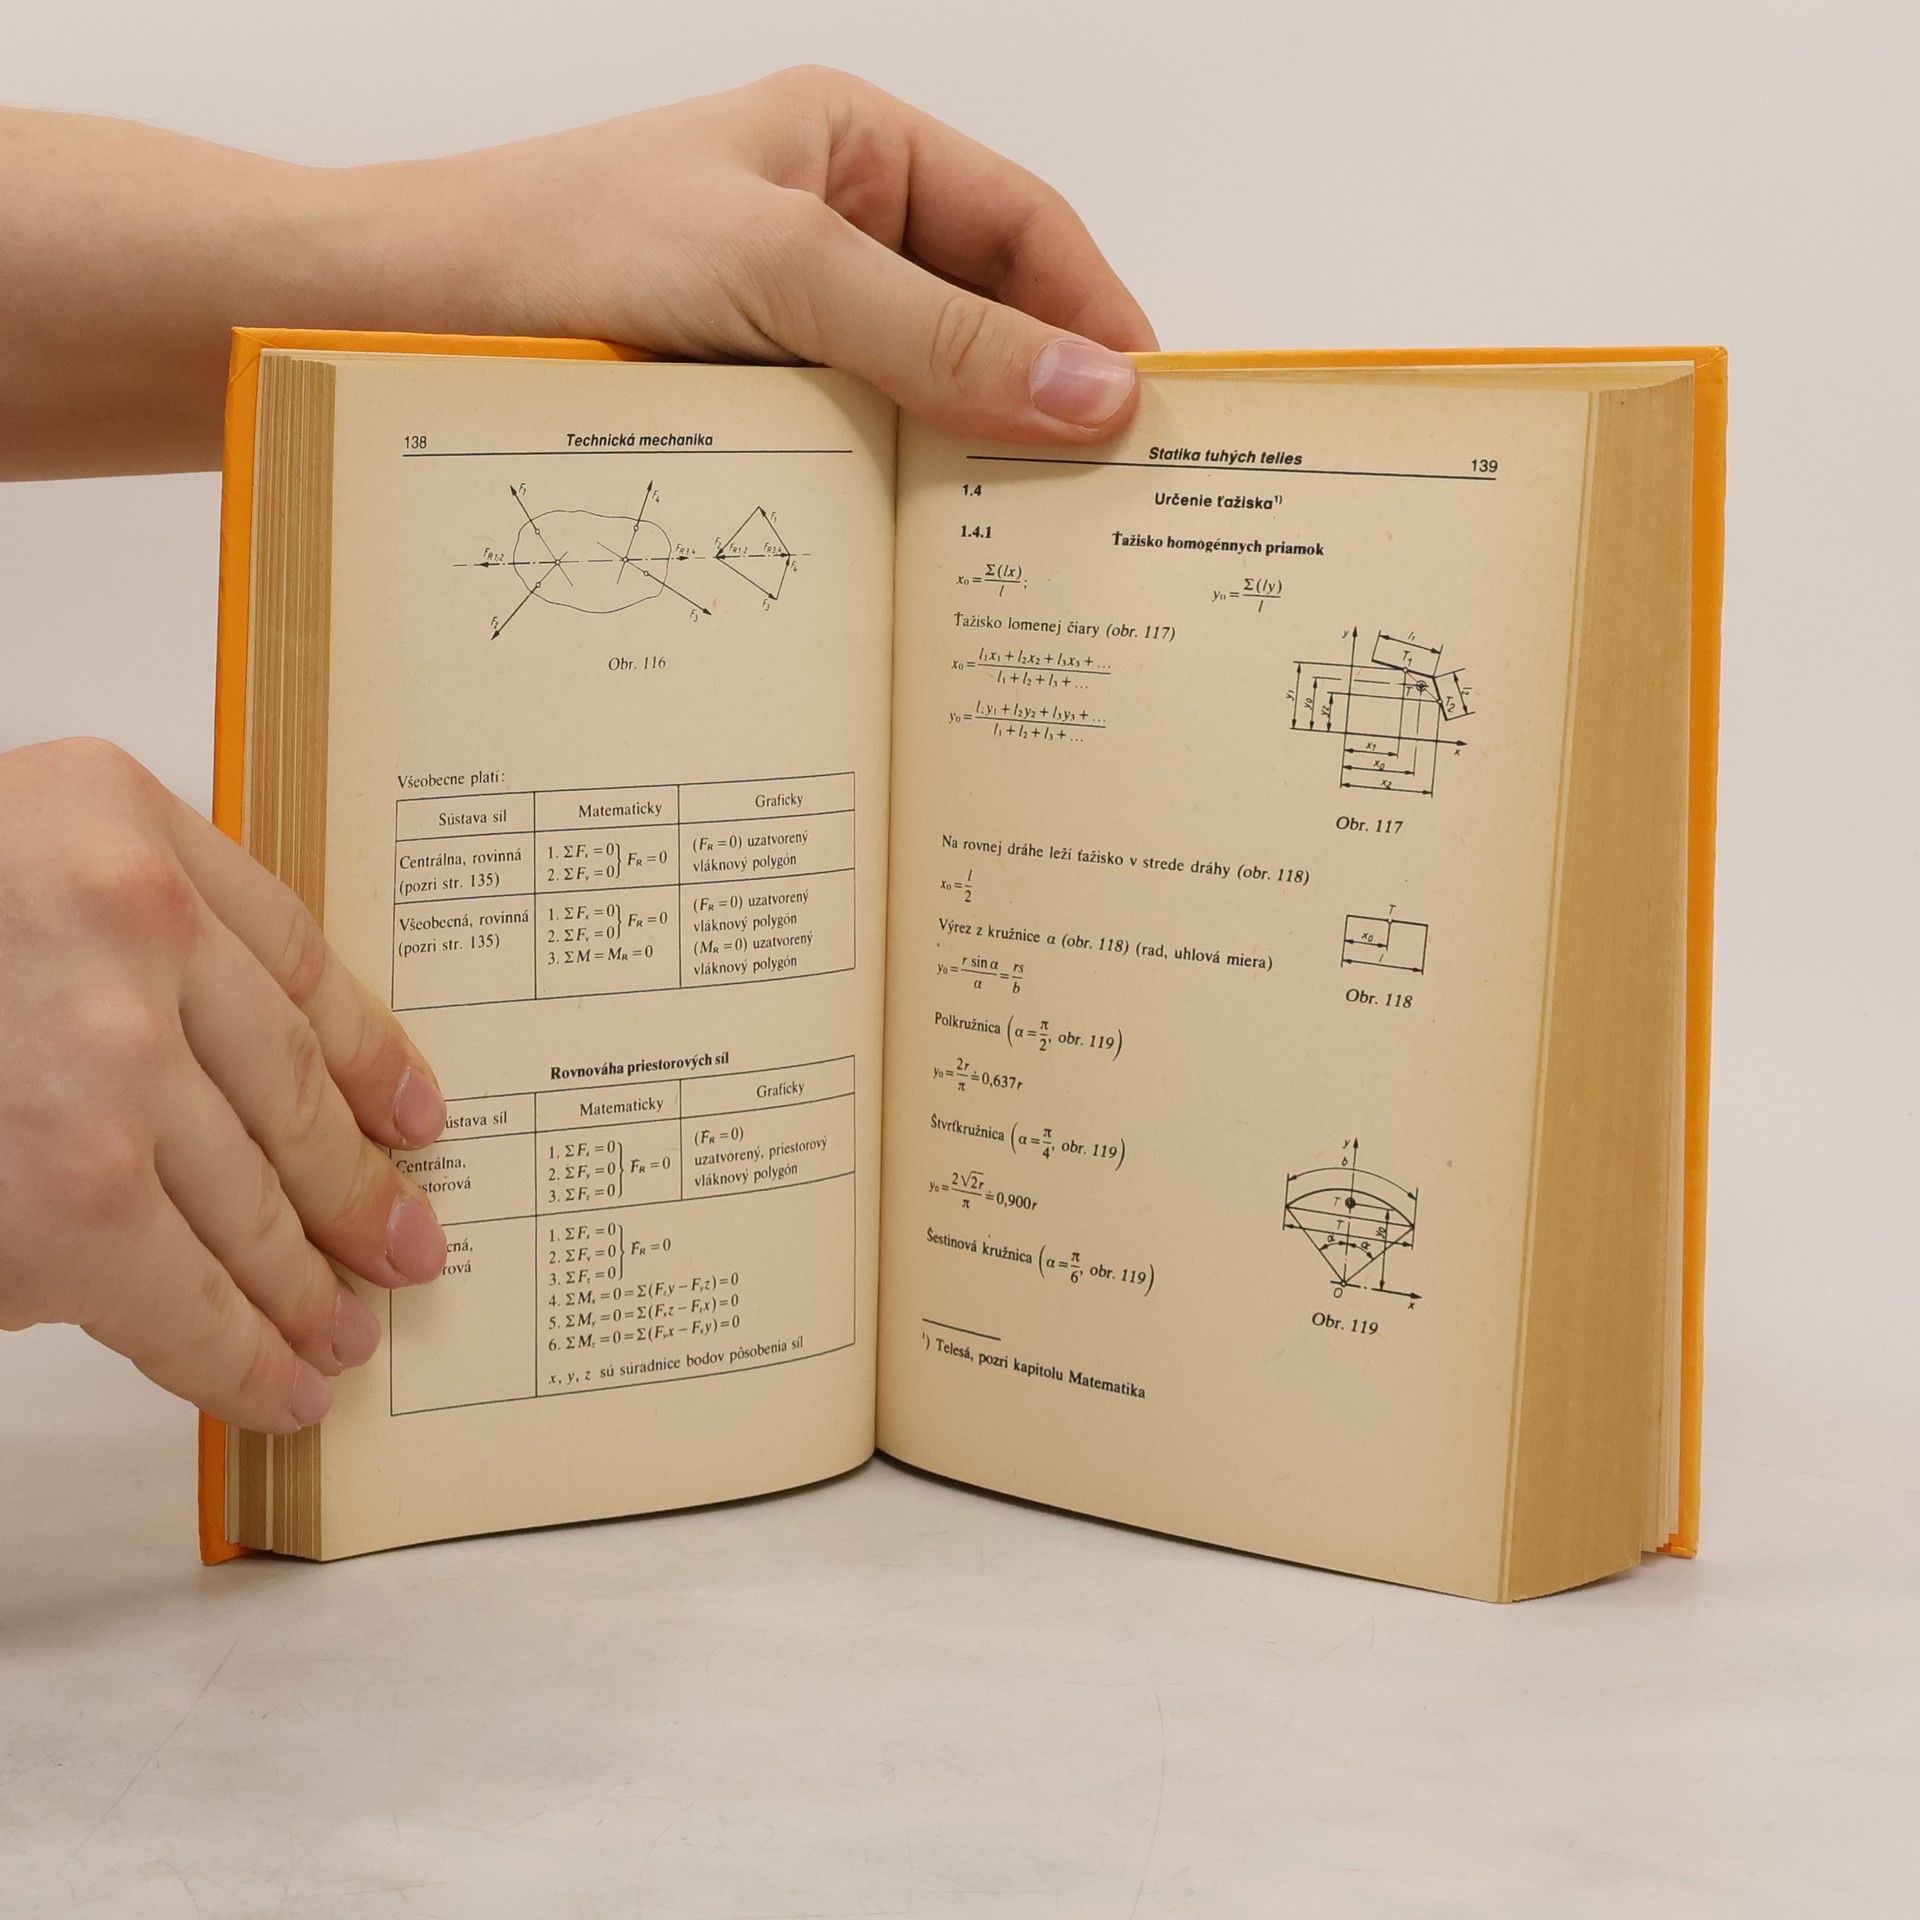 138 Technická mechanika
F₁ F₄
F_R1,2 F_R3,4 F₂ F_R1,2 F_R3,4 F₁ F₄
F₂ F₃ F₃
Obr. 116
Všeobecne platí:
Sústava síl Matematicky Graficky
Centrálna, rovinná
(pozri str. 135)
1. ΣFₓ = 0
2. ΣFᵧ = 0
F_R = 0
(F_R = 0) uzatvorený
vláknový polygón
Všeobecná, rovinná
(pozri str. 135)
1. ΣFₓ = 0
2. ΣFᵧ = 0
F_R = 0
3. ΣM = M_R = 0
(F_R = 0) uzatvorený
vláknový polygón
(M_R = 0) uzatvorený
vláknový polygón
Rovnováha priestorových síl
ústava síl Matematicky Graficky
Centrálna,
storová
1. ΣFₓ = 0
2. ΣFᵧ = 0
3. ΣF_z = 0
F_R = 0
(F_R = 0)
uzatvorený, priestorový
vláknový polygón
cná,
rová
1. ΣFₓ = 0
2. ΣFᵧ = 0
3. ΣF_z = 0
F_R = 0
4. ΣMₓ = 0 = Σ(F_z y − Fᵧ z) = 0
5. ΣMᵧ = 0 = Σ(Fₓ z − F_z x) = 0
6. ΣM_z = 0 = Σ(Fᵧ x − Fₓ y) = 0
x, y, z sú súradnice bodov pôsobenia síl
Statika tuhých telies 139
1.4 Určenie ťažiska¹⁾
1.4.1 Ťažisko homogénnych priamok
x₀ = Σ(lx)/l; y₀ = Σ(ly)/l
Ťažisko lomenej čiary (obr. 117)
x₀ = (l₁x₁ + l₂x₂ + l₃x₃ + ...)/(l₁ + l₂ + l₃ + ...)
y₀ = (l₁y₁ + l₂y₂ + l₃y₃ + ...)/(l₁ + l₂ + l₃ + ...)
y l₁
T₁
T l₂
T₂
y₁ y₀ y₂
x
x₁
x₀
x₂
Obr. 117
Na rovnej dráhe leží ťažisko v strede dráhy (obr. 118)
x₀ = l/2
T
x₀
l
Obr. 118
Výrez z kružnice α (obr. 118) (rad, uhlová miera)
y₀ = r sin α/α = rs/b
Polkružnica (α = π/2, obr. 119)
y₀ = 2r/π ≐ 0,637r
Štvrťkružnica (α = π/4, obr. 119)
y₀ = 2√2r/π ≐ 0,900r
Šestinová kružnica (α = π/6, obr. 119)
y
b
T
T
y₀
α α
O x
Obr. 119
¹) Telesá, pozri kapitolu Matematika